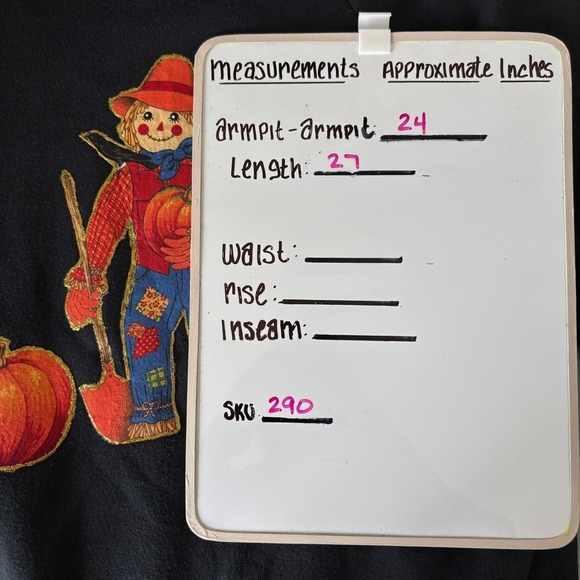 measurements Approximate Inches
armpit-armpit: 24
Length: 27
waist:
rise:
inseam:
SKU 290